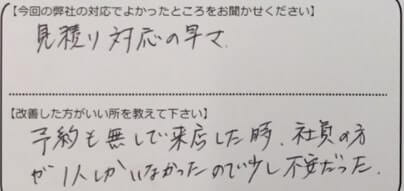 【今回の弊社の対応でよかったところをお聞かせください】
見積り対応の早さ
【改善した方がいい所を教えて下さい】
予約も無しで来店した時、社員の方
が1人しかいなかったので少し不安だった.